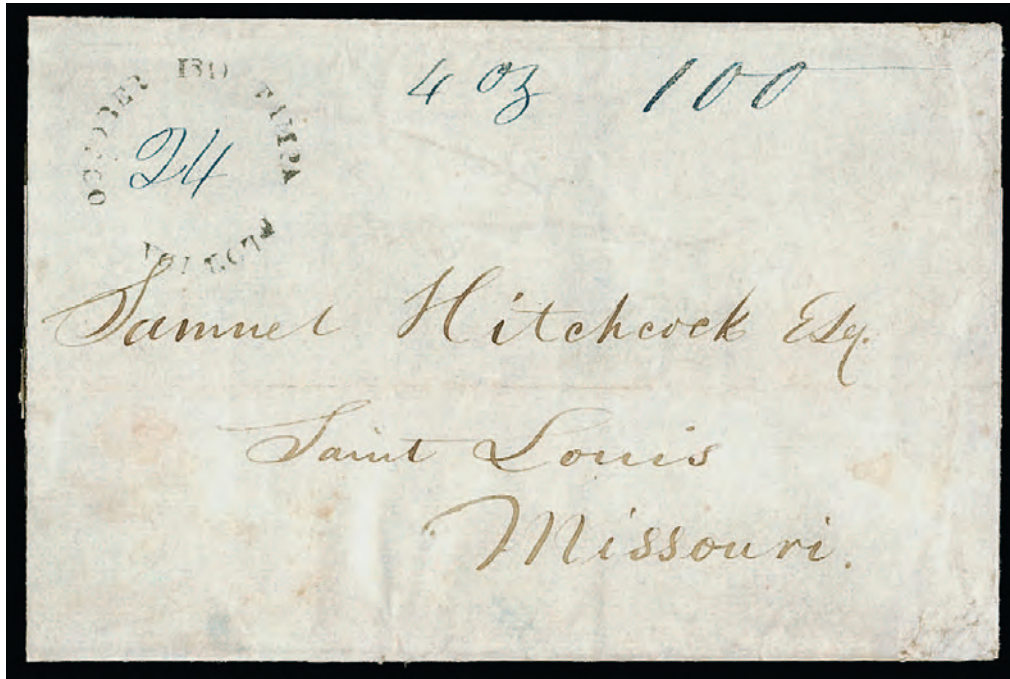 OCTOBER TAMPA
24
4 oz 100
Samuel Hitchcock Esq.
Saint Louis
Missouri.